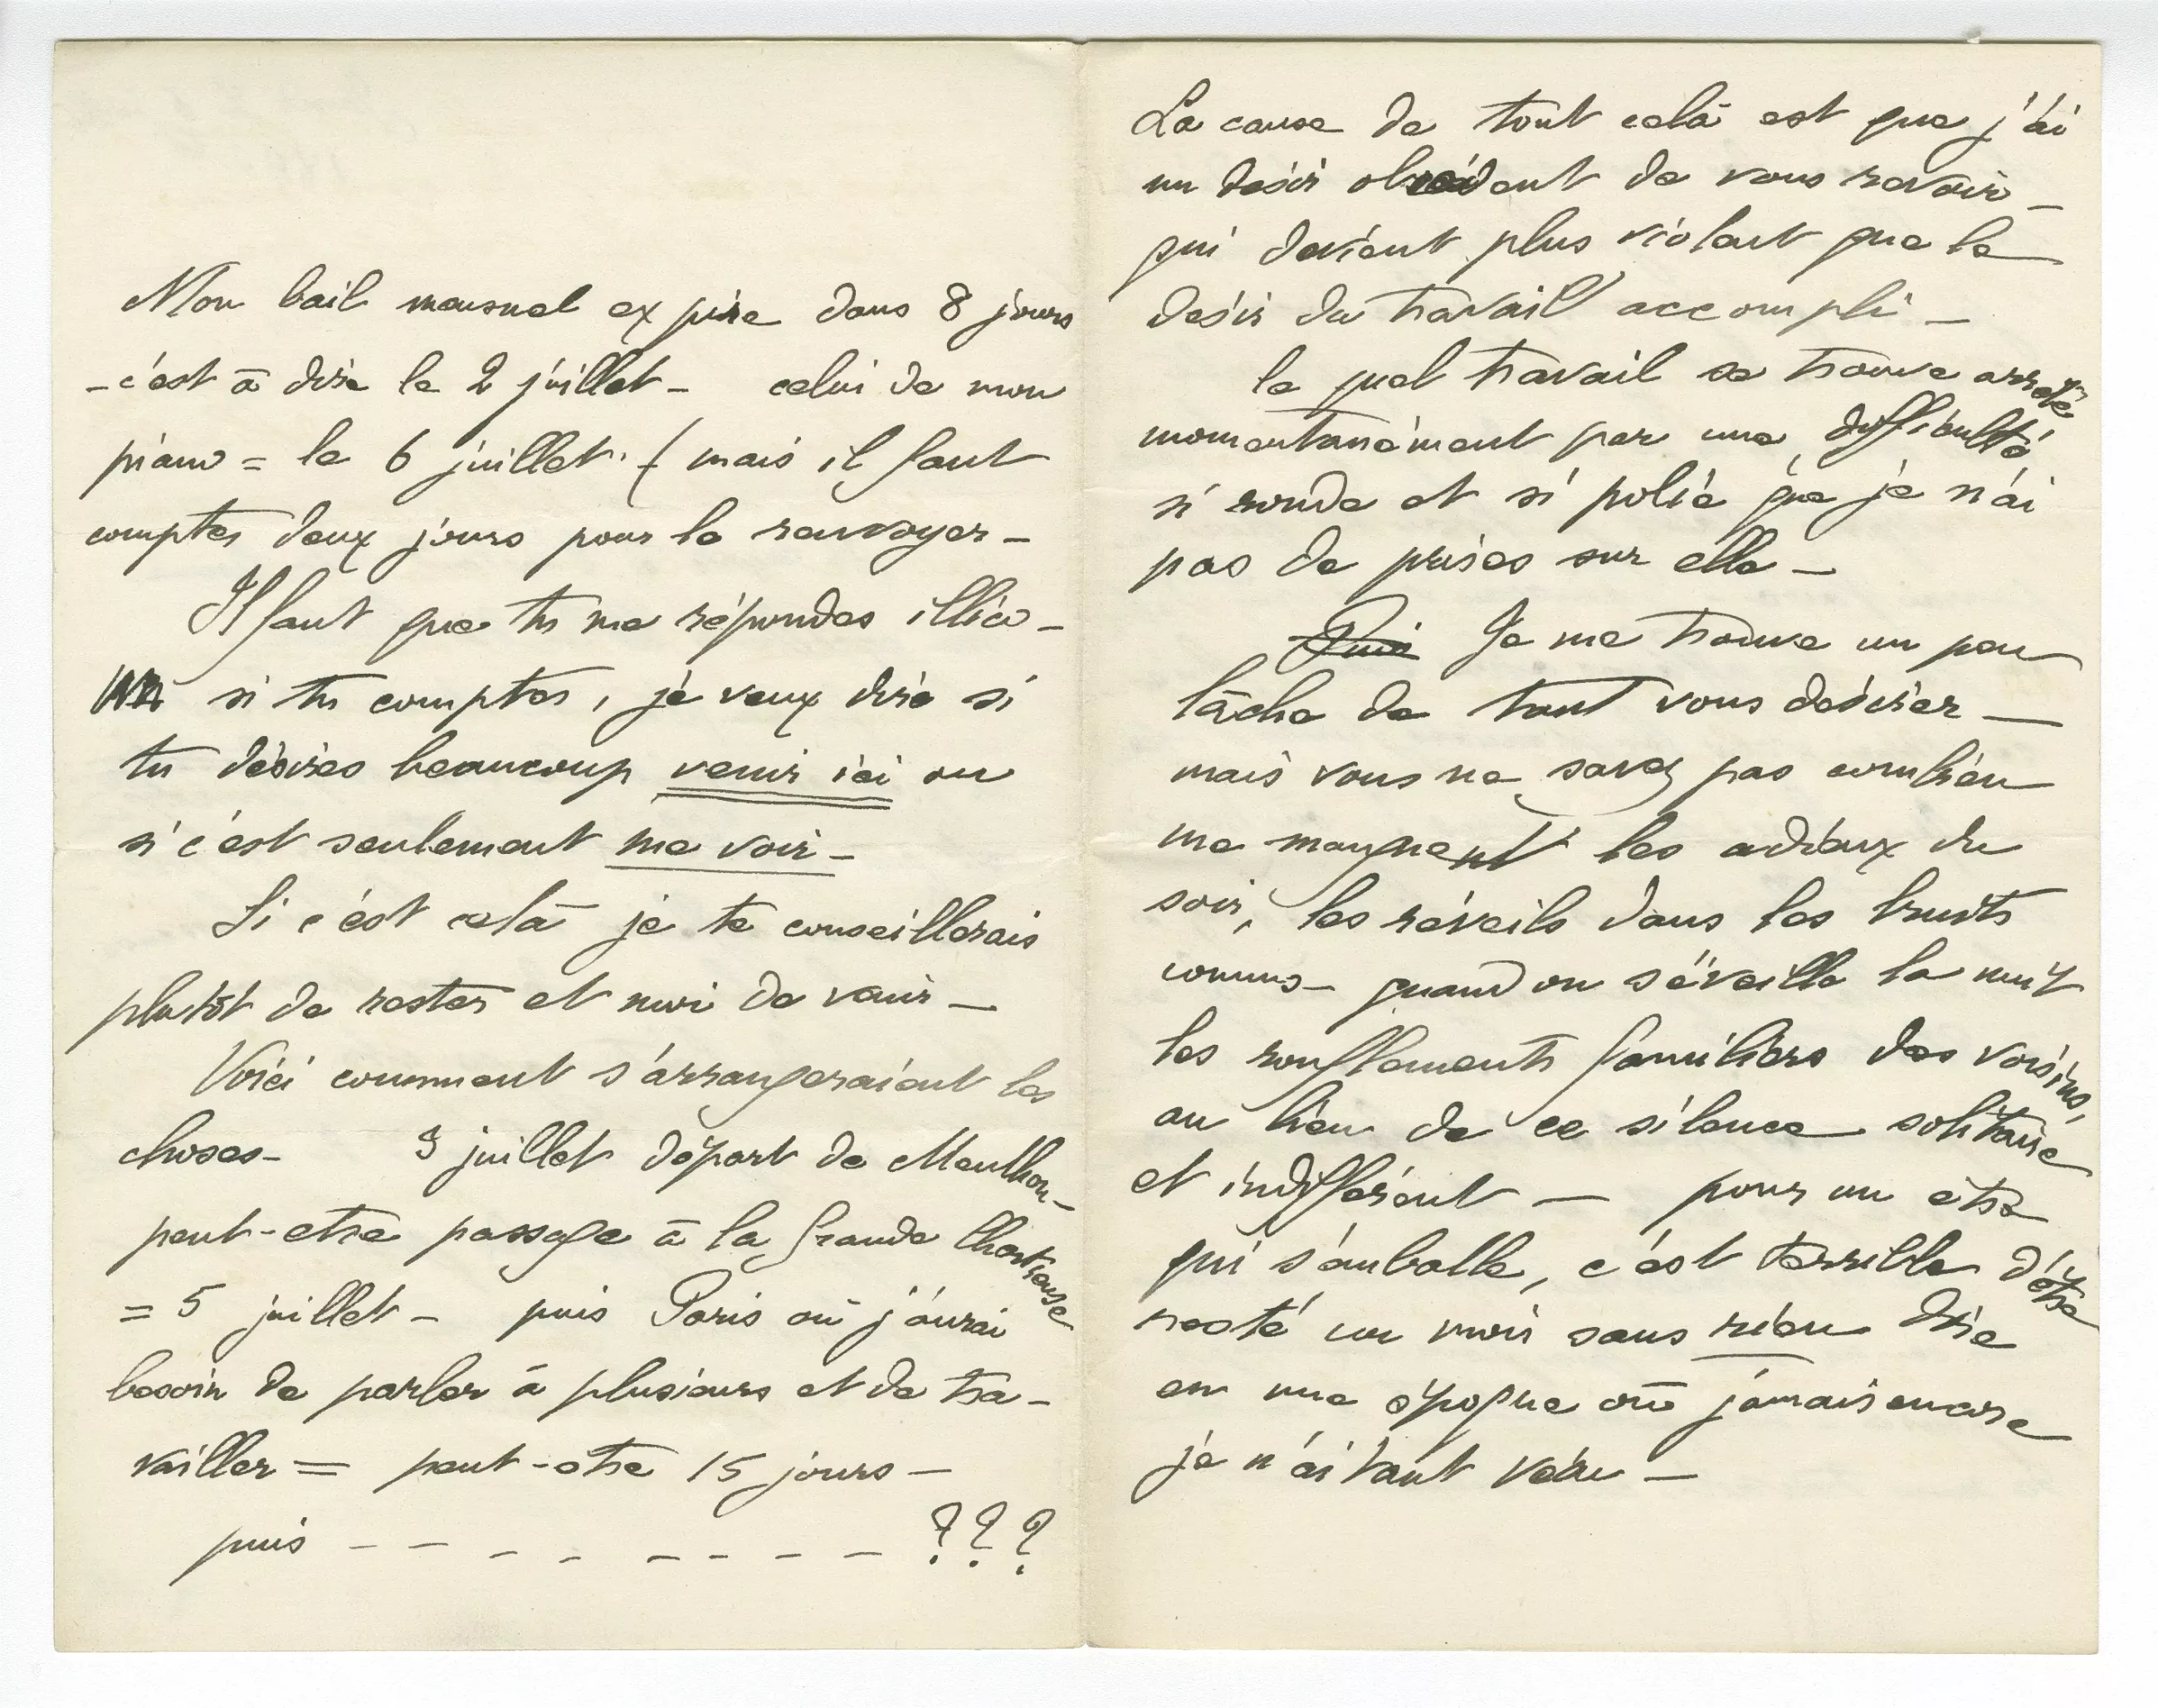 Mon bail mensuel expire dans 8 jours
- c'est à dire le 2 juillet - celui de mon
piano = le 6 juillet. (mais il faut
compter deux jours pour le renvoyer -
Il faut que tu me répondes illico -
si tu comptes, je veux dire si
tu désires beaucoup venir ici ou
si c'est seulement me voir -
Si c'est celà je te conseillerais
plutôt de rester et moi de venir -
Voici comment s'arrangeraient les
choses - 3 juillet départ de Menthon -
peut-etre passage à la Grande Chartreuse
= 5 juillet - puis Paris où j'aurai
besoin de parler à plusieurs et de tra-
vailler = peut-être 15 jours -
puis - - - - - - - - ???
La cause de tout celà est que j'ai
un desir obsédant de vous revoir -
qui devient plus violent que le
désir du travail accompli -
le quel travail se trouve arreté
momentanément par une difficulté
si ronde et si polie que je n'ai
pas de prises sur elle -
Puis Je me trouve un peu
lâche de tant vous désirer -
mais vous ne savez pas combien
me manquent les adieux du
soir, les réveils dans les bruits
connus - quand on s'éveille la nuit
les ronflements familiers des voisins,
au lieu de ce silence solitaire
et indifférent - pour un être
qui s'emballe, c'est terrible d'être
resté un mois sans rien dire
en une époque où jamais encore
je n'ai tant vécu -